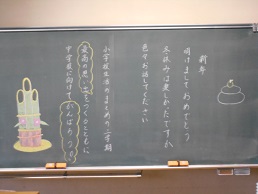 新年
明けましておめでとう
冬休みは楽しかったですか
色々お話してください
小学校生活のまとめの三学期
最高の思い出をつくるとともに
中学校に向けてがんばろう